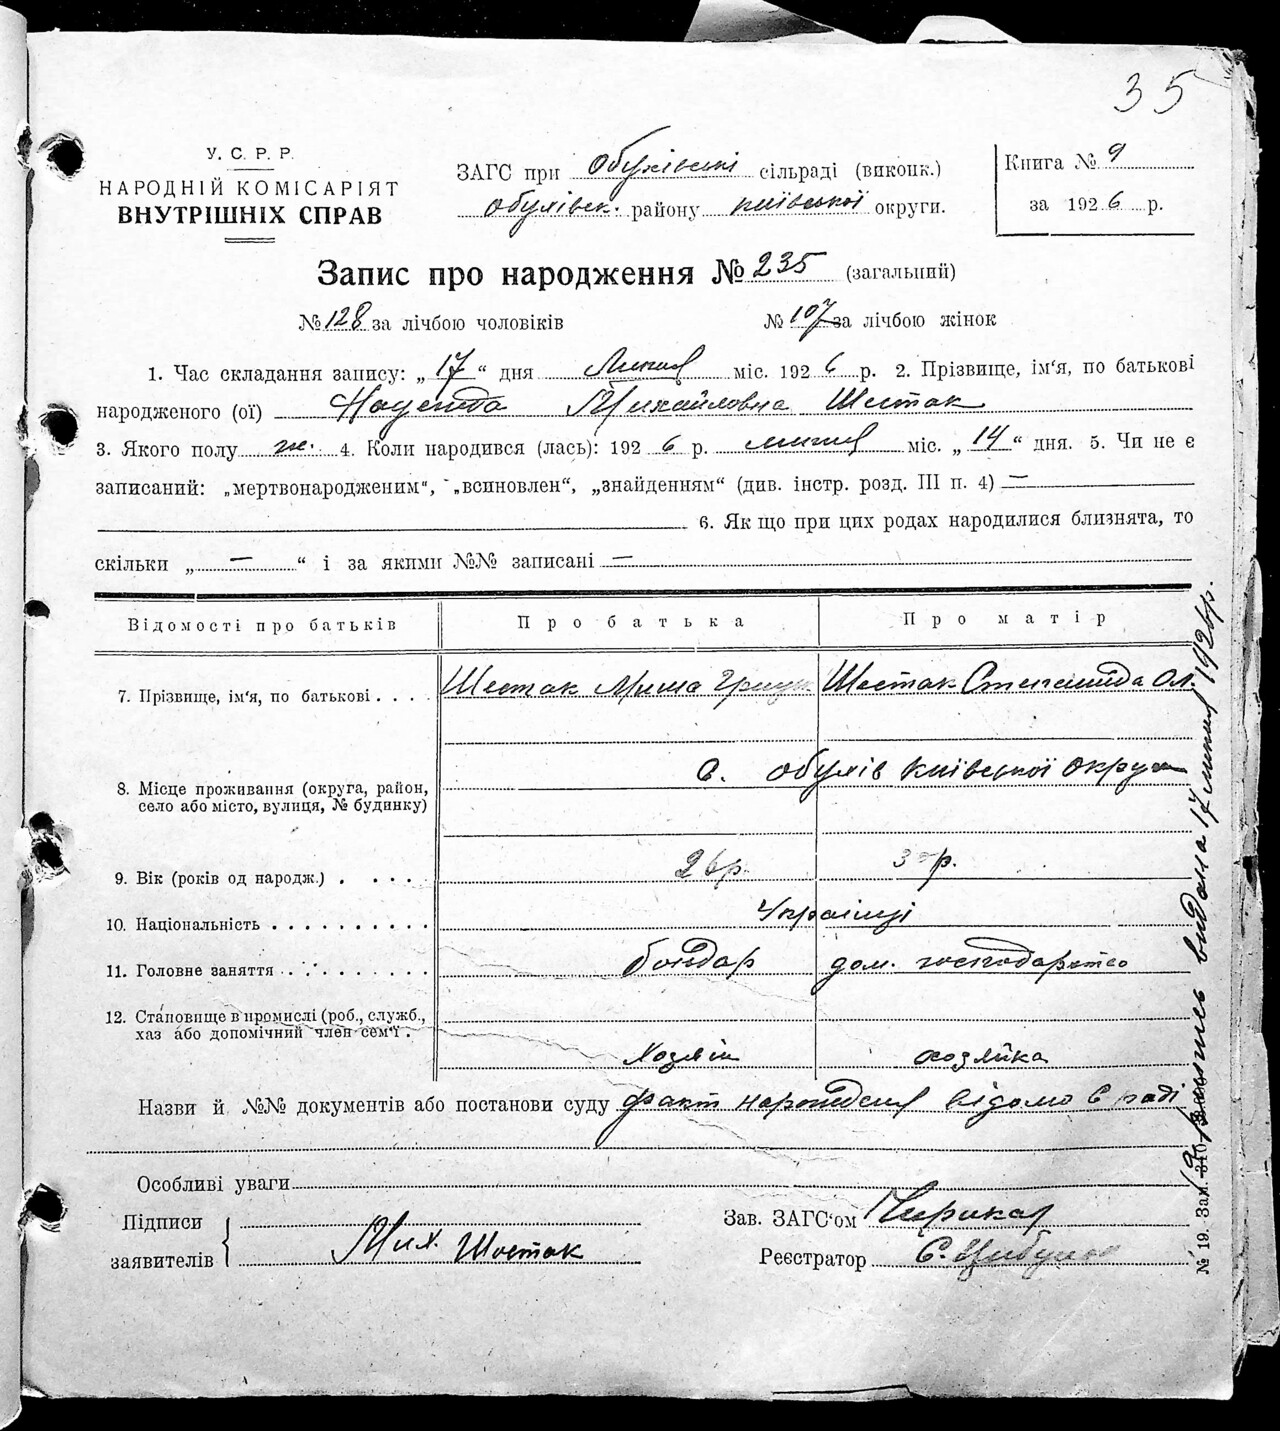 35
У. С. Р. Р.
НАРОДНІЙ КОМІСАРІЯТ
ВНУТРІШНІХ СПРАВ
ЗАГС при Обухівські сільраді (виконк.)
Обухівск. району Київської округи.
Книга № 9
за 1926 р.
Запис про народження № 235 (загальний)
№ 128 за лічбою чоловіків № 107 за лічбою жінок
1. Час складання запису: „ 17 “ дня Липня міс. 1926 р. 2. Прізвище, ім‘я, по батькові
народженого (ої) Надежда Михайловна Шестак
3. Якого полу ж. 4. Коли народився (лась): 1926 р. липня міс. „ 14 “ дня. 5. Чи не є
записаний: „мертвонародженим“, „всиновлен“, „знайденням“ (див. інстр. розд. III п. 4) —
6. Як що при цих родах народилися близнята, то
скільки „ — “ і за якими №№ записані —
Відомості про батьків Про батька Про матір
7. Прізвище, ім‘я, по батькові . . . . Шестак Миша Шестак Степанида Ол.
8. Місце проживання (округа, район, с. Обухів Київської округи
село або місто, вулиця, № будинку)
9. Вік (років од народж.) . . . . . 26 р. 30 р.
10. Національність . . . . . . . . . . Українці
11. Головне заняття . . . . . . . . . бондар дом. господарство
12. Становище в промислі (роб., служб.,
хаз або допомічний член сем‘ї . Хозяін хозяйка
Назви й №№ документів або постанови суду факт народженя відомо в раді
Особливі уваги
Підписи
заявителів Мих. Шостак
Зав. ЗАГС‘ом
Реєстратор Є.
Випись видана 17 липня 1926 р.
№ 19. Зам.